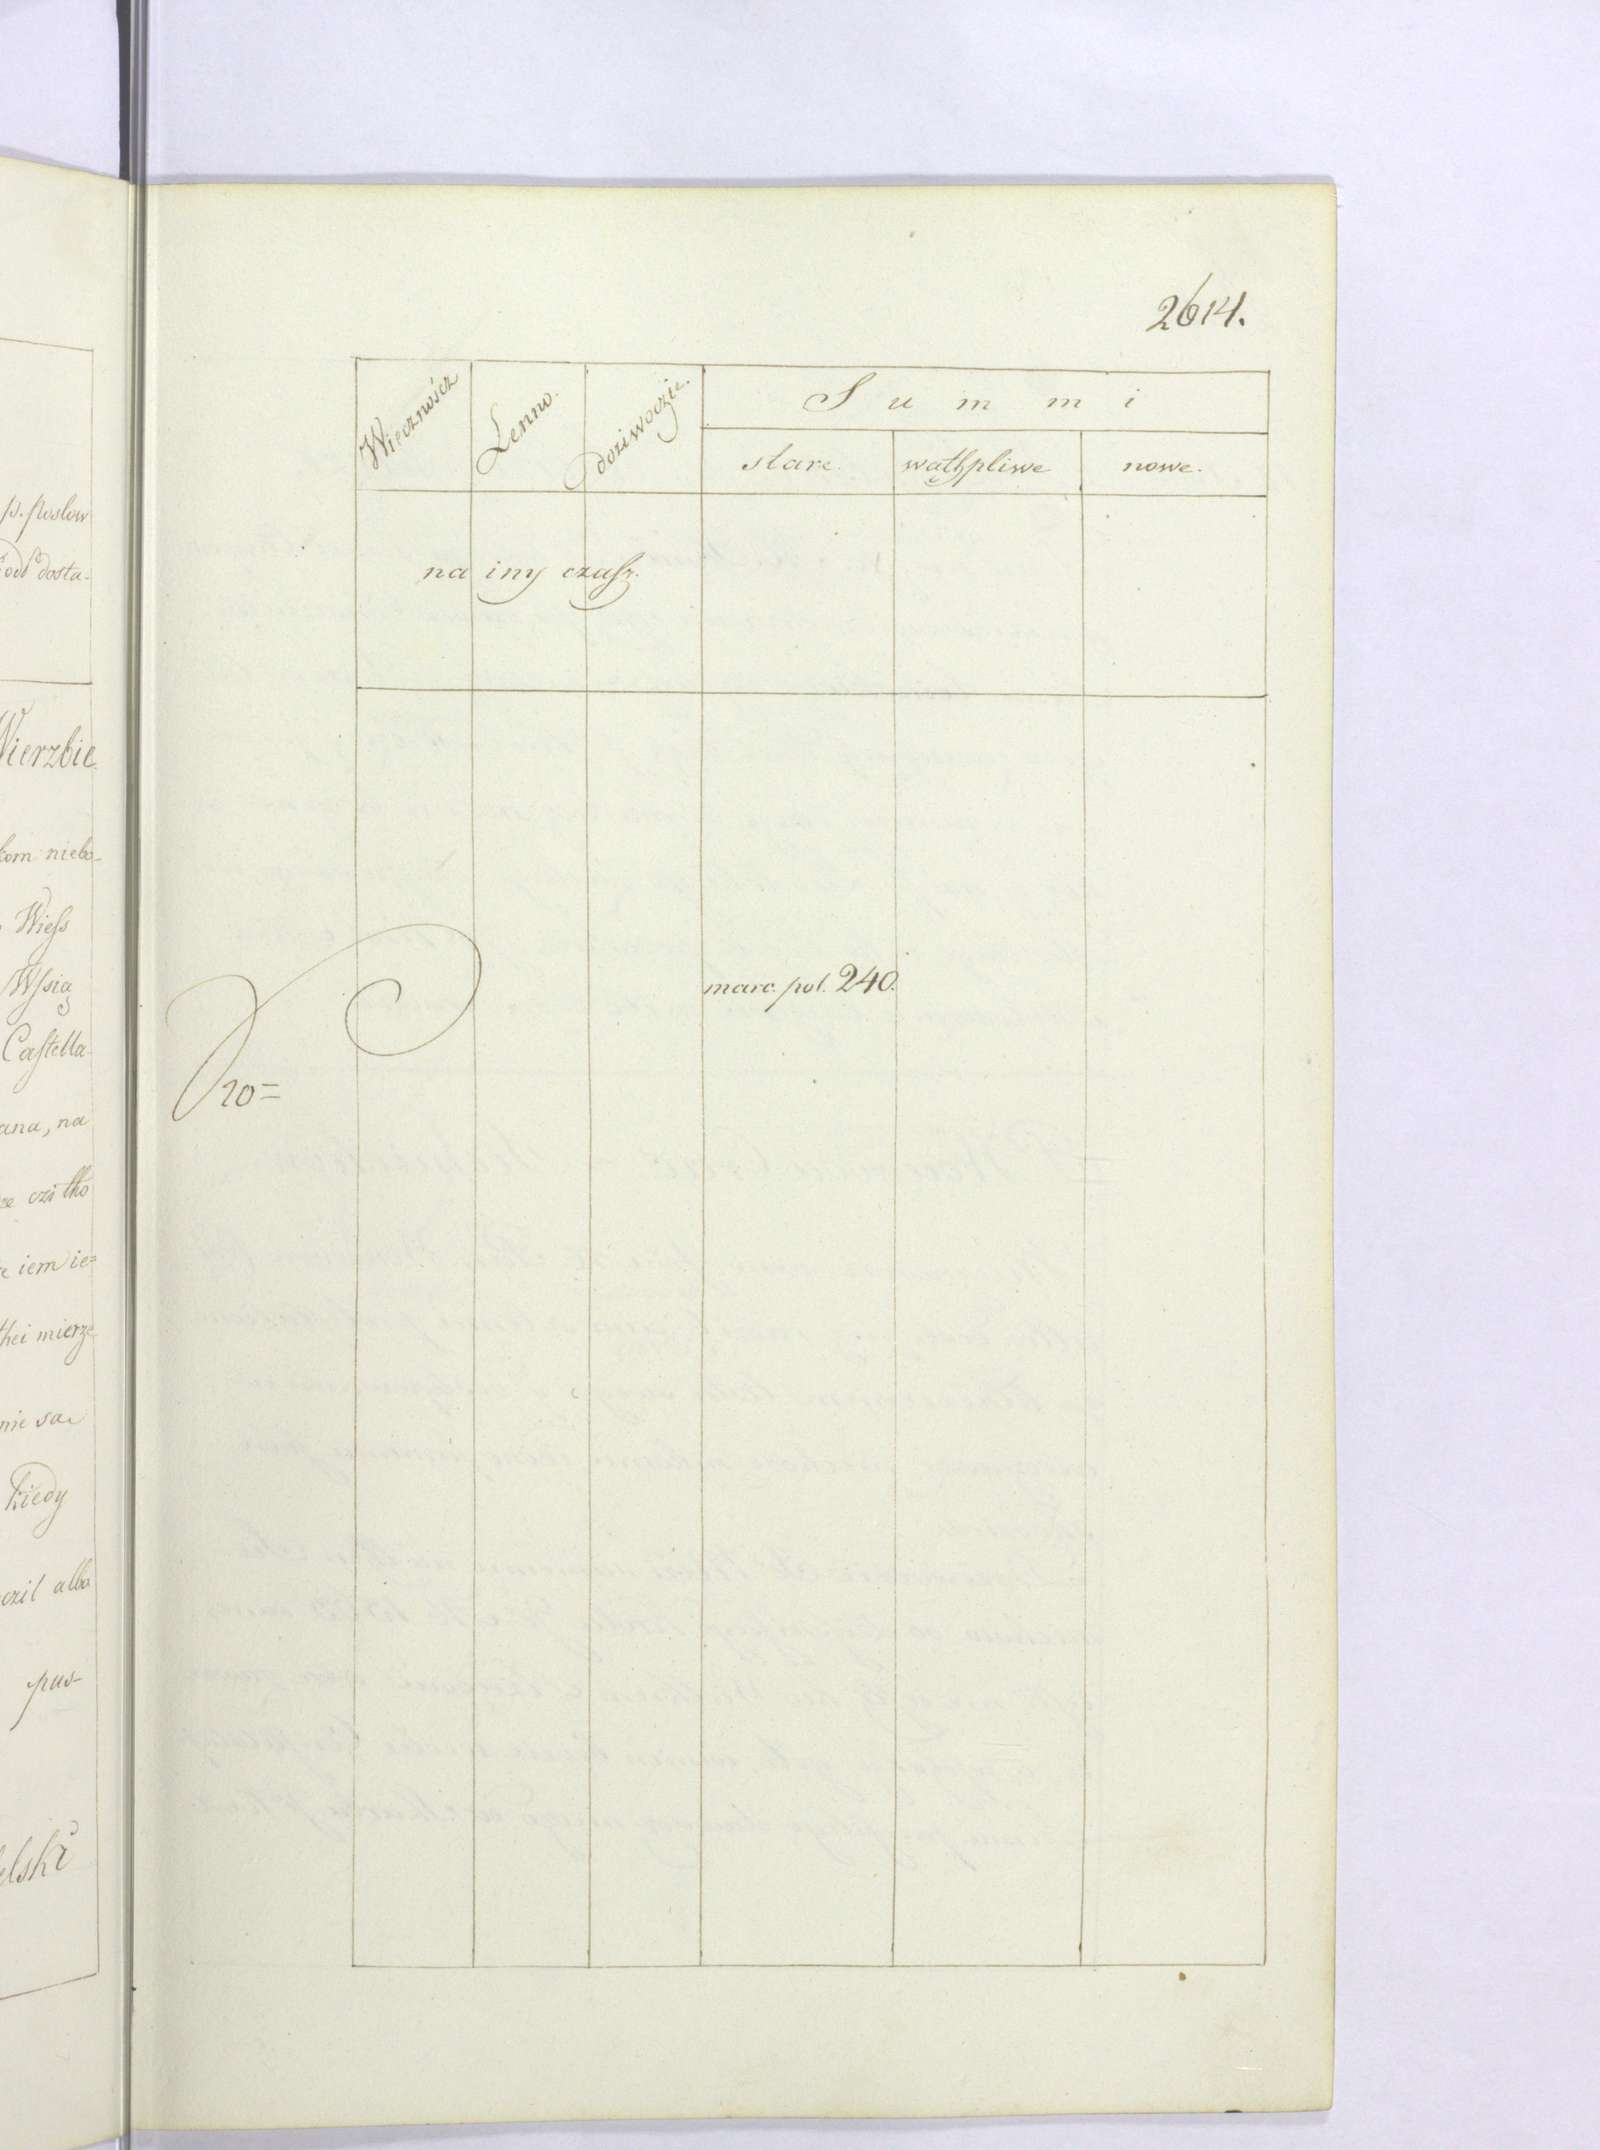 2614.
Wiecznoścz Lenno. doziwoczie. Summi
stare. wątpliwe nowe.
na iny czasz.
marc. pol. 240.
Pro=
p. posłow
dosta-
Wierzbie
kom niebo-
Wiess
Wsią
Castella-
ana, na
czi tko
iem ie=
thei mierze
nie sa
Kiedy
czil albo
pus-
elski